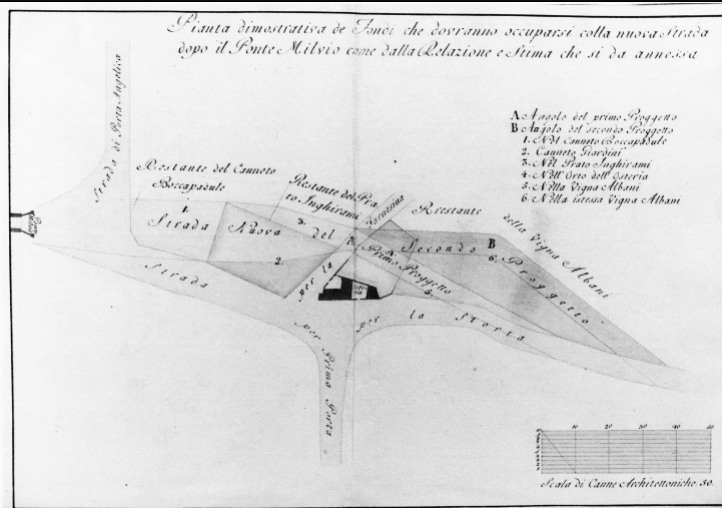 Pianta dimostrativa de Fondi che dovranno occuparsi colla nuova Strada
dopo il Ponte Milvio come dalla Relazione e Stima che si da annessa
A Angolo del primo Proggetto
B Angolo del secondo Proggetto
1. Nel Canneto Boccapadule
2. Canneto Giardini
3. Nel Prato Inghirami
4. Nell' Orto dell' Osteria
5. Nella Vigna Albani
6. Nella istessa Vigna Albani
Strada di Porta Angelica
Restante del Canneto
Boccapadule
Restante del Pra
to Inghirami
Restante
della Vigna Albani
1.
3.
Strada Nuova del Secondo Proggetto
B
6.
2.
Primo Proggetto
5.
Strada
per la
per la Storta
per Prima Porta
10 20 30 40 50
Scala di Canne Architettoniche 50